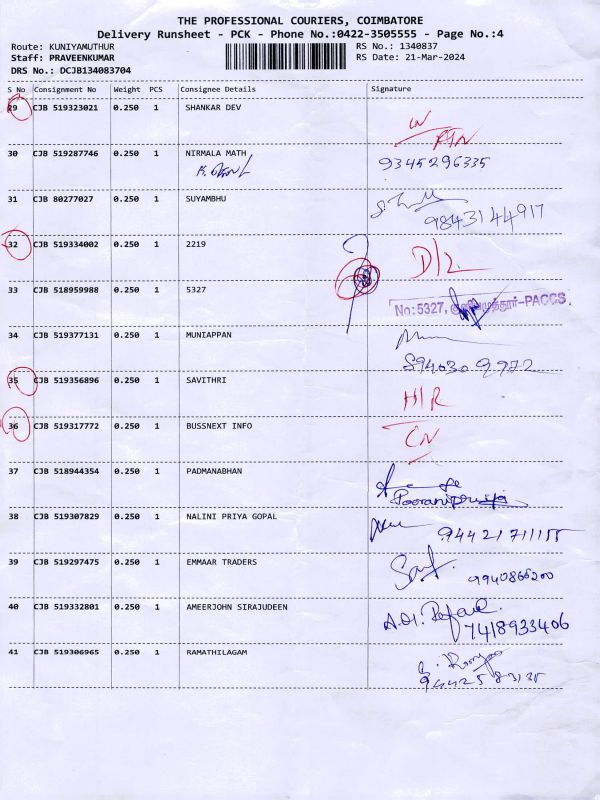 THE PROFESSIONAL COURIERS, COIMBATORE
Delivery Runsheet - PCK - Phone No.:0422-3505555 - Page No.:4
Route: KUNIYAMUTHUR RS No.: 1340837
Staff: PRAVEENKUMAR RS Date: 21-Mar-2024
DRS No.: DCJB134083704
S No Consignment No Weight PCS Consignee Details Signature
29 CJB 519323021 0.250 1 SHANKAR DEV
30 CJB 519287746 0.250 1 NIRMALA MATH 9345296335
31 CJB 80277027 0.250 1 SUYAMBHU
9843144917
32 CJB 519334002 0.250 1 2219 D/L
33 CJB 518959988 0.250 1 5327 No:5327, -PACCS
34 CJB 519377131 0.250 1 MUNIAPPAN
35 CJB 519356896 0.250 1 SAVITHRI H/R
36 CJB 519317772 0.250 1 BUSSNEXT INFO CN
37 CJB 518944354 0.250 1 PADMANABHAN
Pooranipriya
38 CJB 519307829 0.250 1 NALINI PRIYA GOPAL
39 CJB 519297475 0.250 1 EMMAAR TRADERS
9940866200
40 CJB 519332801 0.250 1 AMEERJOHN SIRAJUDEEN
7418933406
41 CJB 519306965 0.250 1 RAMATHILAGAM